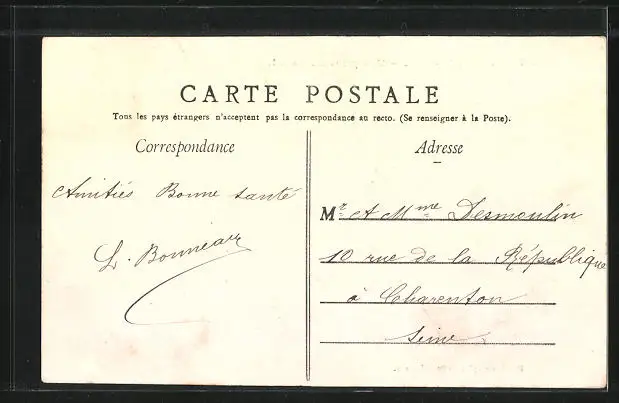 CARTE POSTALE
Tous les pays étrangers n'acceptent pas la correspondance au recto. (Se renseigner à la Poste).
Correspondance
Adresse
Amitiés Bonne santé
L. Bonneau
Mr et Mme Desmoulin
10 rue de la République
à Charenton
Seine